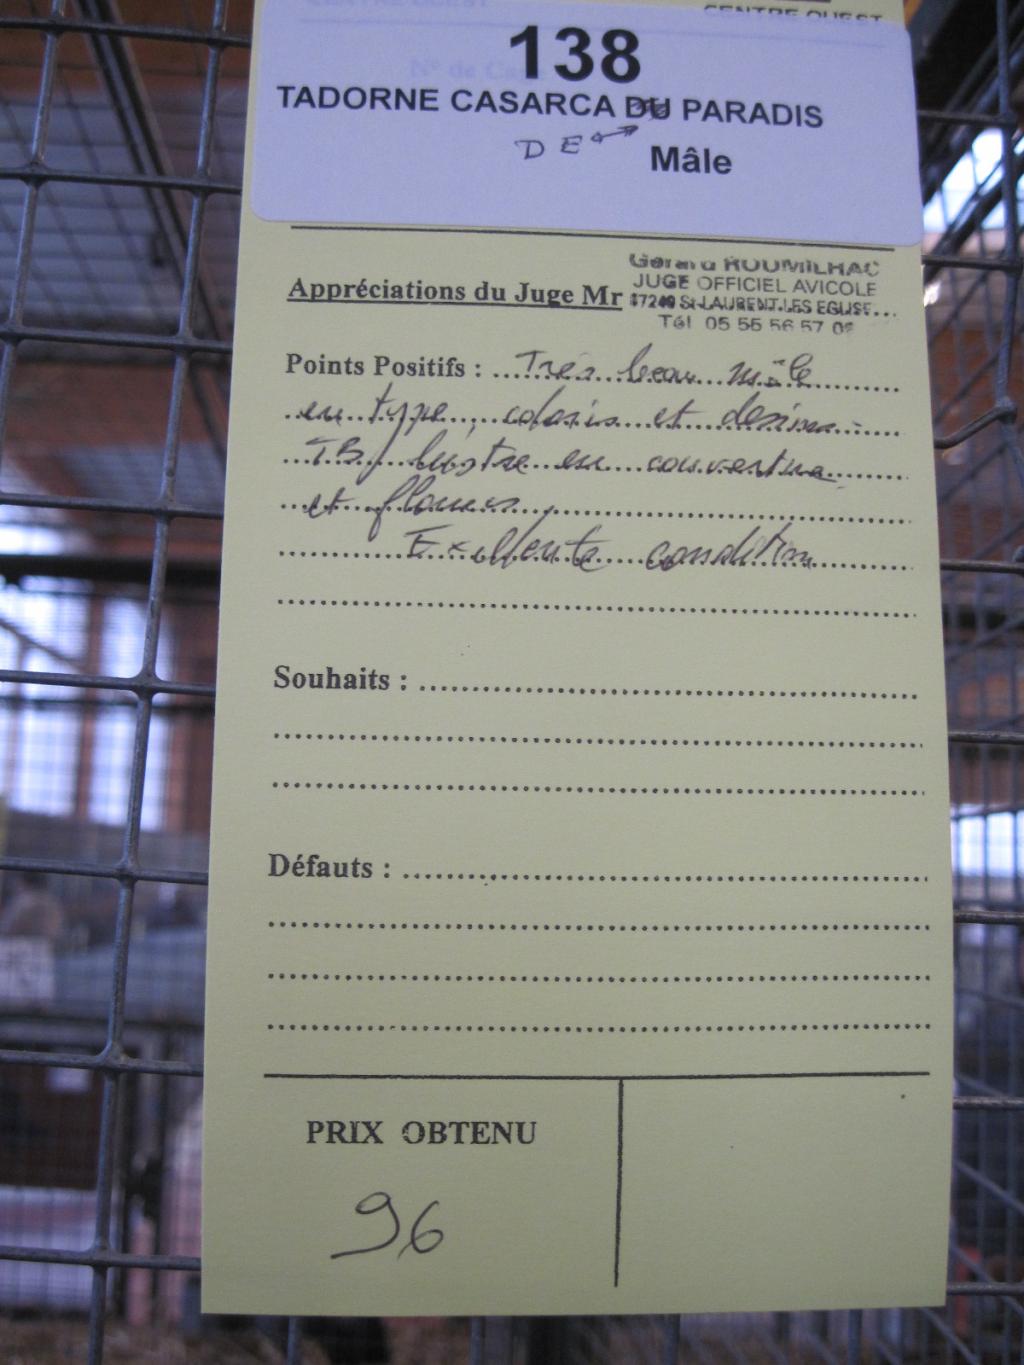 CENTRE OUEST
138
TADORNE CASARCA DU PARADIS
DE
Mâle
Gérard ROUMILHAC
JUGE OFFICIEL AVICOLE
Appréciations du Juge Mr
87240 St-LAURENT-LES EGLISE...
Tél 05 55 56 57 09
Points Positifs : Très beau mâle
en type, coloris et dessins
TB/ lustre en couverture
et flancs
Excellente condition
Souhaits :
Défauts :
PRIX OBTENU
96